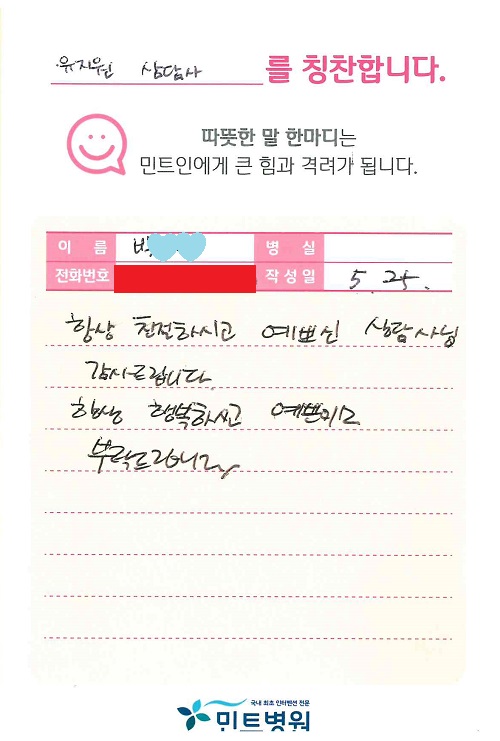 유지원 상담사 를 칭찬합니다.
따뜻한 말 한마디는
민트인에게 큰 힘과 격려가 됩니다.
이 름 박 병 실
전화번호 작성일 5. 25.
항상 친절하시고 예쁘신 상담사님
감사드립니다.
항상 행복하시고
부탁드려니다
국내 최초 인터벤션 전문
민트병원